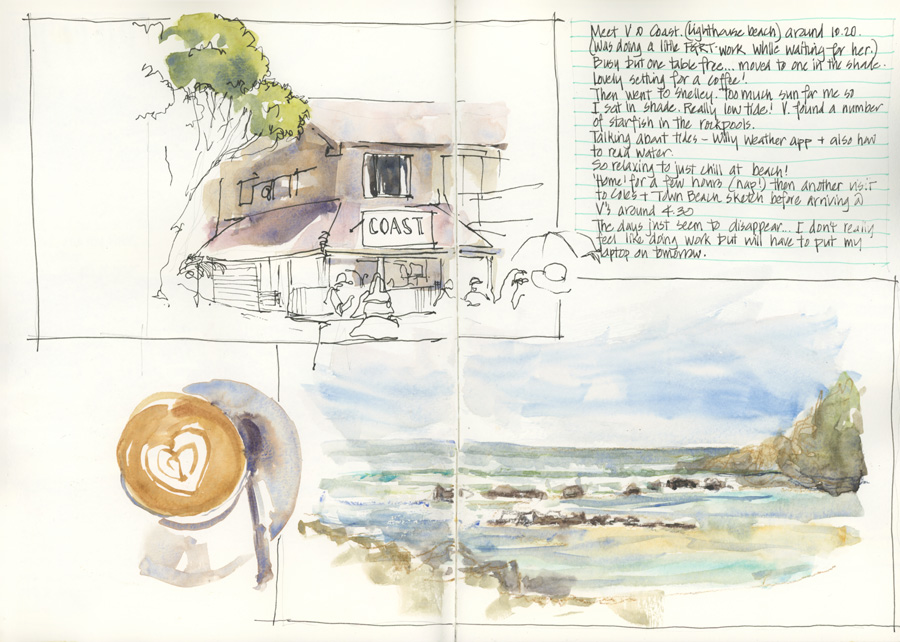 COAST
Meet V @ Coast. (Lighthouse beach) around 10.20.
(was doing a little F&RT work while waiting for her.)
Busy but one table free... moved to one in the shade.
Lovely setting for a coffee!
Then went to Shelley. Too much sun for me so
I sat in shade. Really low tide! V. found a number
of starfish in the rockpools.
Talking about tides - Willy Weather app + also how
to read water.
So relaxing to just chill at beach!
Home for a few hours (nap!) then another visit
to Coles + Town Beach sketch before arriving @
V's around 4.30
The days just seem to disappear... I don't really
feel like doing work but will have to put my
laptop on tomorrow.